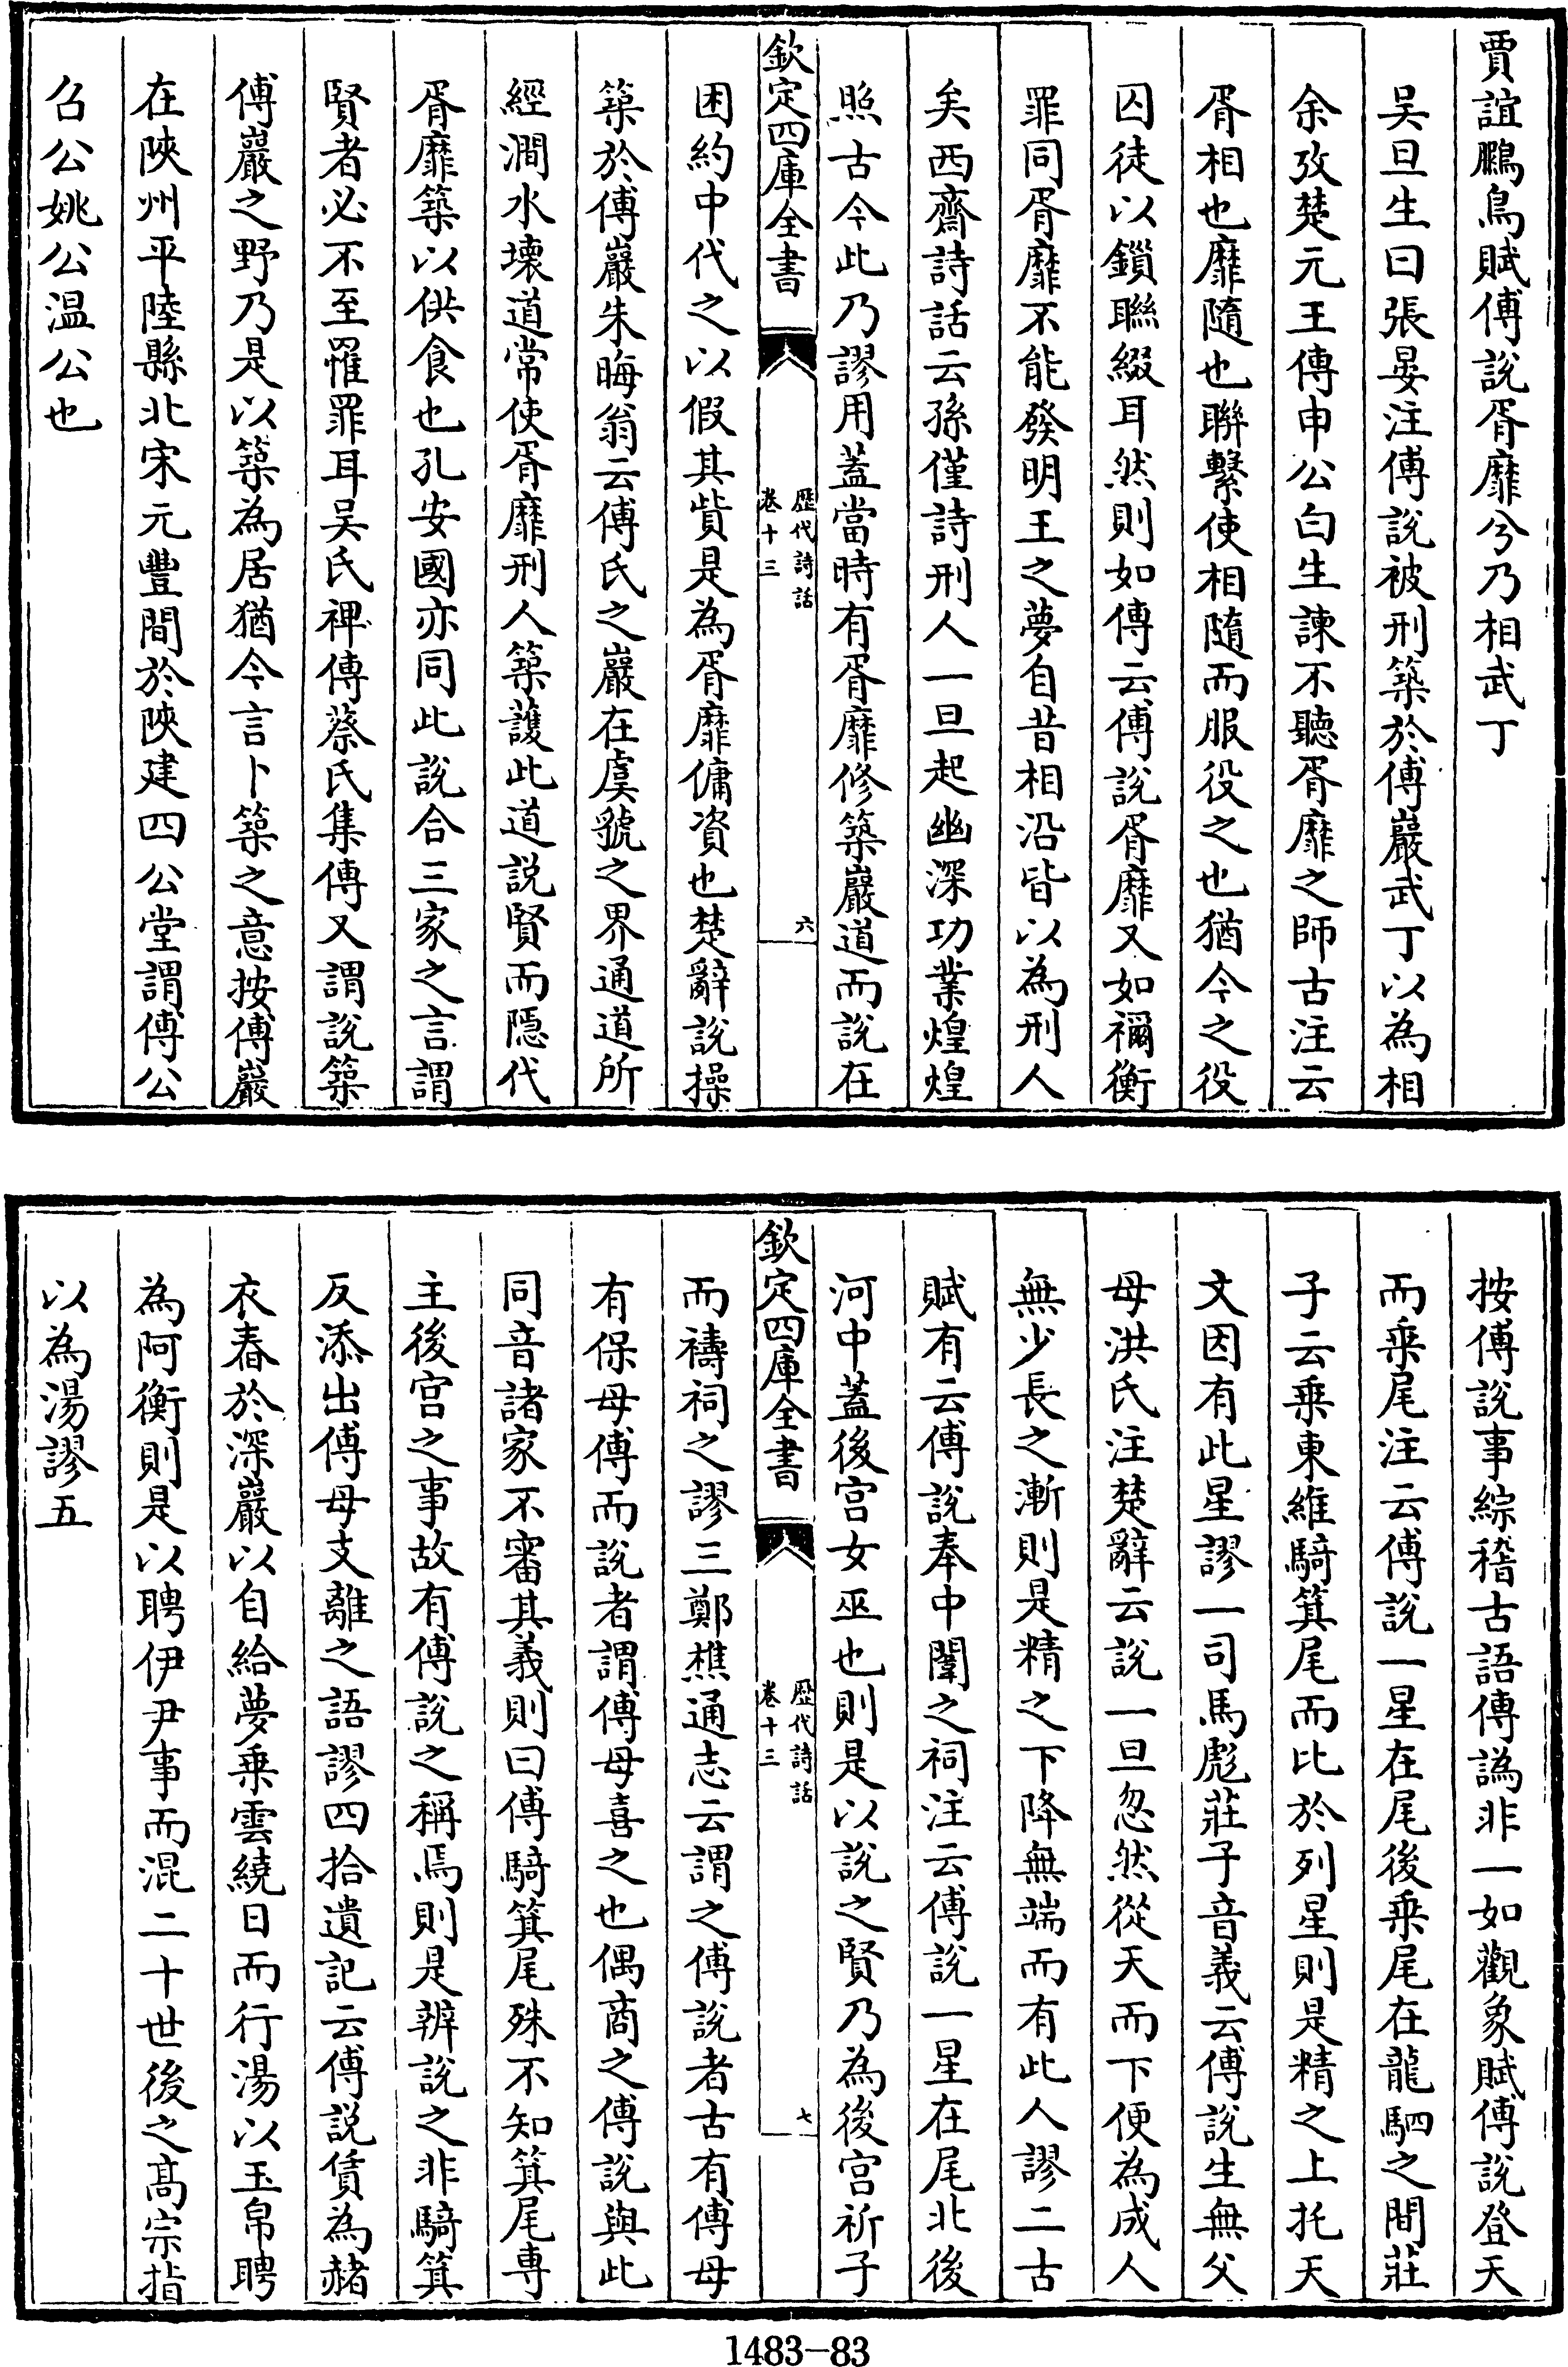 賈誼鵬鳥賦傅說胥靡兮乃相武丁
吳旦生曰張晏注傅說被刑築於傅巖武丁以為相
余攷楚元王傳申公白生諫不聽胥靡之師古注云
胥相也靡隨也聯繫使相隨而服役之也猶今之役
囚徒以鎖聯綴耳然則如傳云傅說胥靡又如禰衡
罪同胥靡不能發明王之夢自昔相沿皆以為刑人
矣西齋詩話云孫僅詩刑人一旦起幽深功業煌煌
照古今此乃謬用蓋當時有胥靡修築巖道而說在
欽定四庫全書
歷代詩話
卷十三
六
困約中代之以假其貲是為胥靡傭資也楚辭說操
築於傅巖朱晦翁云傅氏之巖在虞虢之界通道所
經澗水壞道常使胥靡刑人築護此道説賢而隱代
胥靡築以供食也孔安國亦同此說合三家之言謂
賢者必不至罹罪耳吳氏裨傳蔡氏集傳又謂說築
傅巖之野乃是以築為居猶今言卜築之意按傅巖
在陝州平陸縣北宋元豐間於陝建四公堂謂傅公
召公姚公溫公也
按傅說事綜稽古語傳譌非一如觀象賦傅說登天
而乘尾注云傅說一星在尾後乘尾在龍駟之間莊
子云乗東維騎箕尾而比於列星則是精之上托天
文因有此星謬一司馬彪莊子音義云傅說生無父
母洪氏注楚辭云說一旦忽然從天而下便為成人
無少長之漸則是精之下降無端而有此人謬二古
賦有云傅說奉中闈之祠注云傅說一星在尾北後
河中蓋後宮女巫也則是以說之賢乃為後宮祈子
欽定四庫全書
歷代詩話
卷十三
七
而禱祠之謬三鄭樵通志云謂之傅說者古有傅母
有保母傅而說者謂傅母喜之也偶商之傅說與此
同音諸家不審其義則曰傅騎箕尾殊不知箕尾專
主後宮之事故有傅說之稱焉則是辨說之非騎箕
反添出傅母支離之語謬四拾遺記云傅説賃為赭
衣舂於深巖以自給夢乗雲繞日而行湯以玉帛聘
為阿衡則是以聘伊尹事而混二十世後之髙宗指
以為湯謬五
1483-83